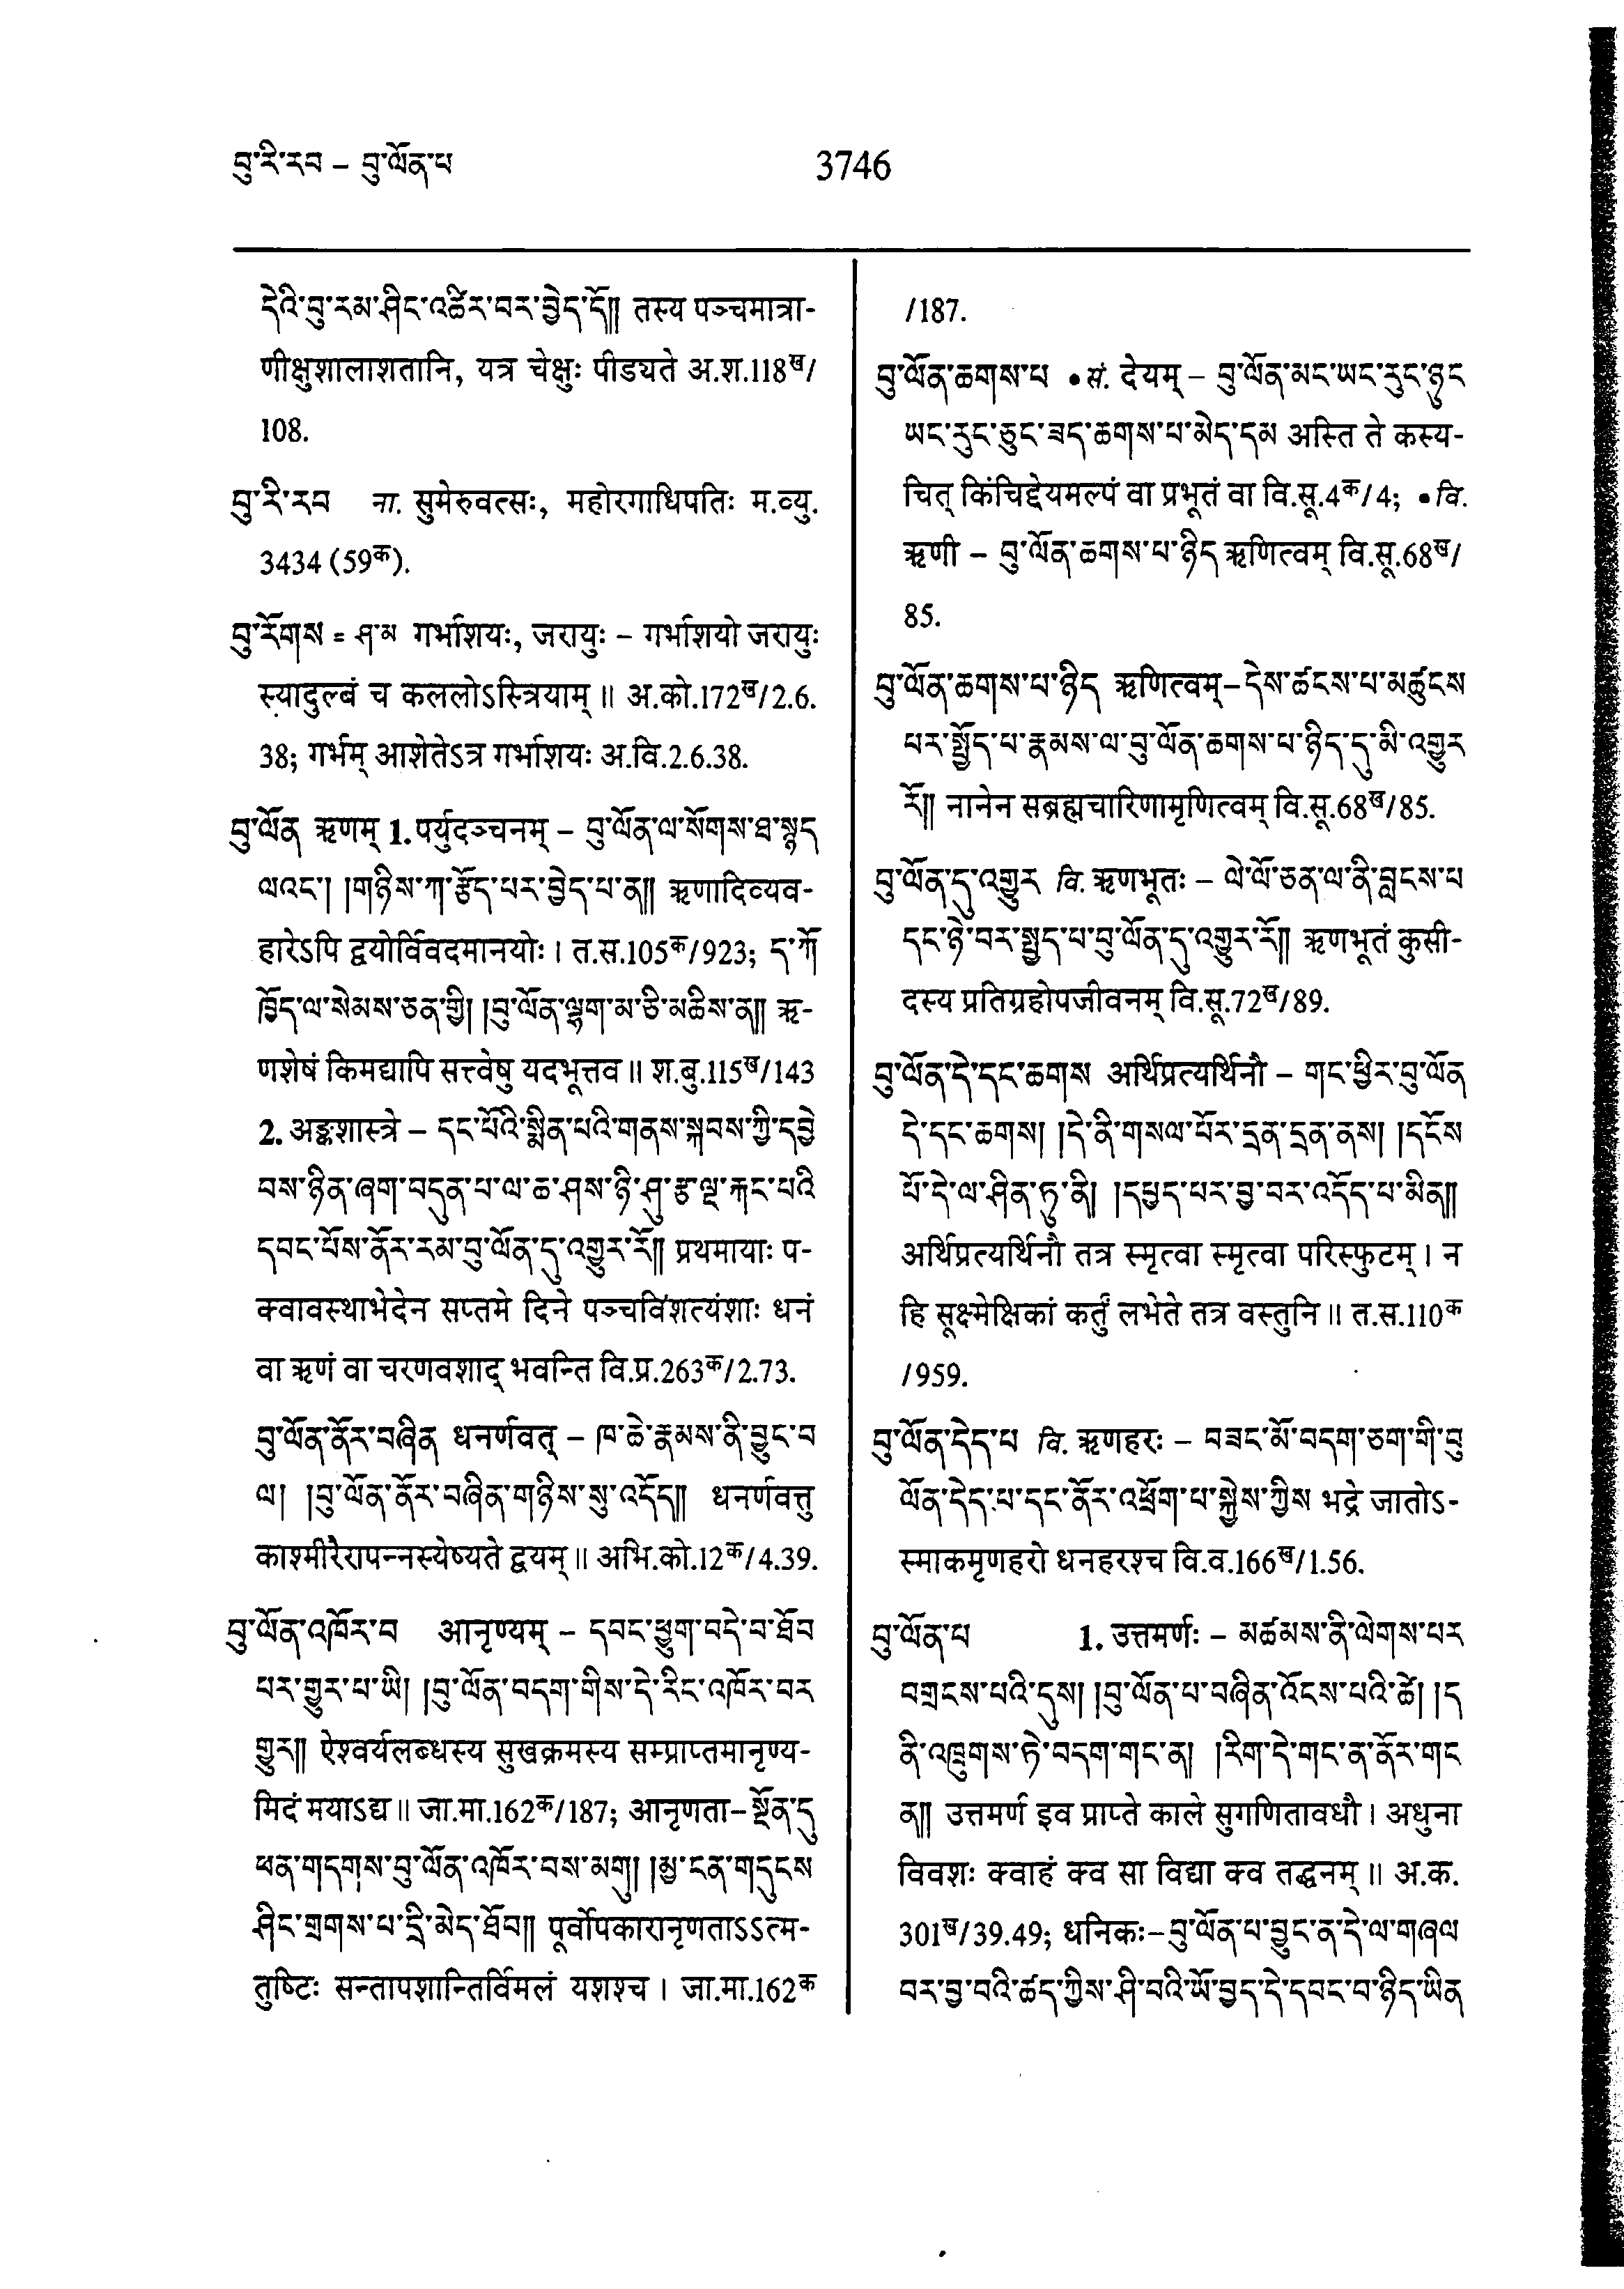 བུ་རི་རབ – བུ་ལོན་པ
3746
དེའི་བུ་རམ་ཤིང་འཚིར་བར་བྱེད་དོ།། तस्य पञ्चमात्रा-
णीक्षुशालाशतानि, यत्र चेक्षुः पीड्यते अ.श.118ख/
108.
བུ་རི་རབ ना. सुमेरुवत्सः, महोरगाधिपतिः म.व्यु.
3434 (59क).
བུ་རོགས = ཤ་མ गर्भाशयः, जरायुः – गर्भाशयो जरायुः
स्यादुल्बं च कललोऽस्त्रियाम् ॥ अ.को.172ख/2.6.
38; गर्भम् आशेतेऽत्र गर्भाशयः अ.वि.2.6.38.
བུ་ལོན ऋणम् 1. पर्युदञ्चनम् – བུ་ལོན་ལ་སོགས་ཐ་སྙད
ལའང་། །གཉིས་ཀ་རྩོད་པར་བྱེད་པ་ན།། ऋणादिव्यव-
हारेऽपि द्वयोर्विवदमानयोः । त.स.105क/923; ད་ཀོ
ཁྱོད་ལ་སེམས་ཅན་གྱི། །བུ་ལོན་ལྷག་མ་ཅི་མཆིས་ན།། ऋ-
णशेषं किमद्यापि सत्त्वेषु यदभूत्तव ॥ श.बु.115ख/143
2. अङ्कशास्त्रे – དང་པོའི་སྨིན་པའི་གནས་སྐབས་ཀྱི་དབྱེ
བས་ཉིན་ཞག་བདུན་པ་ལ་ཆ་ཤས་ཉི་ཤུ་རྩ་ལྔ་རྐང་པའི
དབང་པོས་ནོར་རམ་བུ་ལོན་དུ་འགྱུར་རོ།། प्रथमायाः प-
क्वावस्थाभेदेन सप्तमे दिने पञ्चविंशत्यंशाः धनं
वा ऋणं वा चरणवशाद् भवन्ति वि.प्र.263क/2.73.
བུ་ལོན་ནོར་བཞིན धनर्णवत् – ཁ་ཆེ་རྣམས་ནི་བྱུང་བ
ལ། །བུ་ལོན་ནོར་བཞིན་གཉིས་སུ་འདོད།། धनर्णवत्तु
काश्मीरैरापन्नस्येष्यते द्वयम् ॥ अभि.को.12क/4.39.
བུ་ལོན་འཁོར་བ आनृण्यम् – དབང་ཕྱུག་བདེ་བ་ཐོབ
པར་གྱུར་པ་ཡི། །བུ་ལོན་བདག་གིས་དེ་རིང་འཁོར་བར
གྱུར།། ऐश्वर्यलब्धस्य सुखक्रमस्य सम्प्राप्तमानृण्य-
मिदं मयाऽद्य ॥ जा.मा.162क/187; आनृणता– སྔོན་དུ
ཕན་གདགས་བུ་ལོན་འཁོར་བས་མགུ། །མྱ་ངན་གདུངས
ཤིང་གྲགས་པ་དྲི་མེད་ཐོབ།། पूर्वोपकारानृणताऽऽत्म-
तुष्टिः सन्तापशान्तिर्विमलं यशश्च । जा.मा.162क
/187.
བུ་ལོན་ཆགས་པ • सं. देयम् – བུ་ལོན་མང་ཡང་རུང་ཉུང
ཡང་རུང་ཅུང་ཟད་ཆགས་པ་མེད་དམ अस्ति ते कस्य-
चित् किंचिद्देयमल्पं वा प्रभूतं वा वि.सू.4क/4; • वि.
ऋणी – བུ་ལོན་ཆགས་པ་ཉིད ऋणित्वम् वि.सू.68ख/
85.
བུ་ལོན་ཆགས་པ་ཉིད ऋणित्वम्– དེས་ཚངས་པ་མཚུངས
པར་སྤྱོད་པ་རྣམས་ལ་བུ་ལོན་ཆགས་པ་ཉིད་དུ་མི་འགྱུར
རོ།། नानेन सब्रह्मचारिणामृणित्वम् वि.सू.68ख/85.
བུ་ལོན་དུ་འགྱུར वि. ऋणभूतः – ལེ་ལོ་ཅན་ལ་ནི་བླངས་པ
དང་ཉེ་བར་སྤྱད་པ་བུ་ལོན་དུ་འགྱུར་རོ།། ऋणभूतं कुसी-
दस्य प्रतिग्रहोपजीवनम् वि.सू.72ख/89.
བུ་ལོན་དེ་དང་ཆགས अर्थिप्रत्यर्थिनौ – གང་ཕྱིར་བུ་ལོན
དེ་དང་ཆགས། །དེ་ནི་གསལ་པོར་དྲན་དྲན་ནས། །དངོས
པོ་དེ་ལ་ཤིན་ཏུ་ནི། །དཔྱད་པར་བྱ་བར་འདོད་པ་མིན།།
अर्थिप्रत्यर्थिनौ तत्र स्मृत्वा स्मृत्वा परिस्फुटम् । न
हि सूक्ष्मेक्षिकां कर्तुं लभेते तत्र वस्तुनि ॥ त.स.110क
/959.
བུ་ལོན་དེད་པ वि. ऋणहरः – བཟང་མོ་བདག་ཅག་གི་བུ
ལོན་དེད་པ་དང་ནོར་འཕྲོག་པ་སྐྱེས་ཀྱིས भद्रे जातोऽ-
स्माकमृणहरो धनहरश्च वि.व.166ख/1.56.
བུ་ལོན་པ 1. उत्तमर्णः – མཚམས་ནི་ལེགས་པར
བགྲངས་པའི་དུས། །བུ་ལོན་པ་བཞིན་འོངས་པའི་ཚེ། །ད
ནི་འཁྲུགས་ཏེ་བདག་གང་ན། །རིག་དེ་གང་ན་ནོར་གང
ན།། उत्तमर्ण इव प्राप्ते काले सुगणितावधौ । अधुना
विवशः क्वाहं क्व सा विद्या क्व तद्धनम् ॥ अ.क.
301ख/39.49; धनिकः– བུ་ལོན་པ་བྱུང་ན་དེ་ལ་གཞལ
བར་བྱ་བའི་ཚད་ཀྱིས་ཤི་བའི་ཡོ་བྱད་དེ་དབང་བ་ཉིད་ཡིན